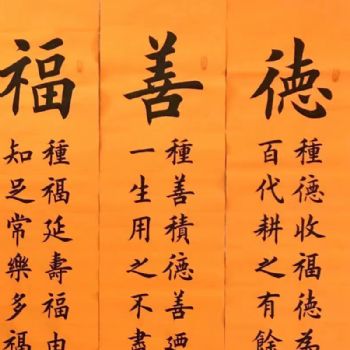 德
種德收福德為
百代耕之有餘
善
種善積德善廼
一生用之不盡
福
種福延壽福由
知足常樂多福